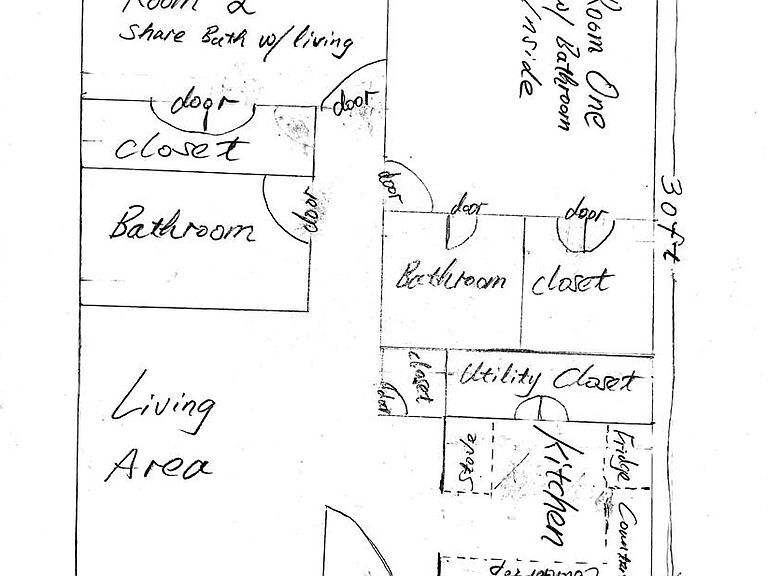 Room 2
Share Bath w/ living
Room One
w/ Bathroom
inside
door
door
closet
door
door
door
door
30ft
Bathroom
Bathroom
closet
closet
Utility Closet
door
Living
Area
Stove
Kitchen
Fridge
Counter
Countertop